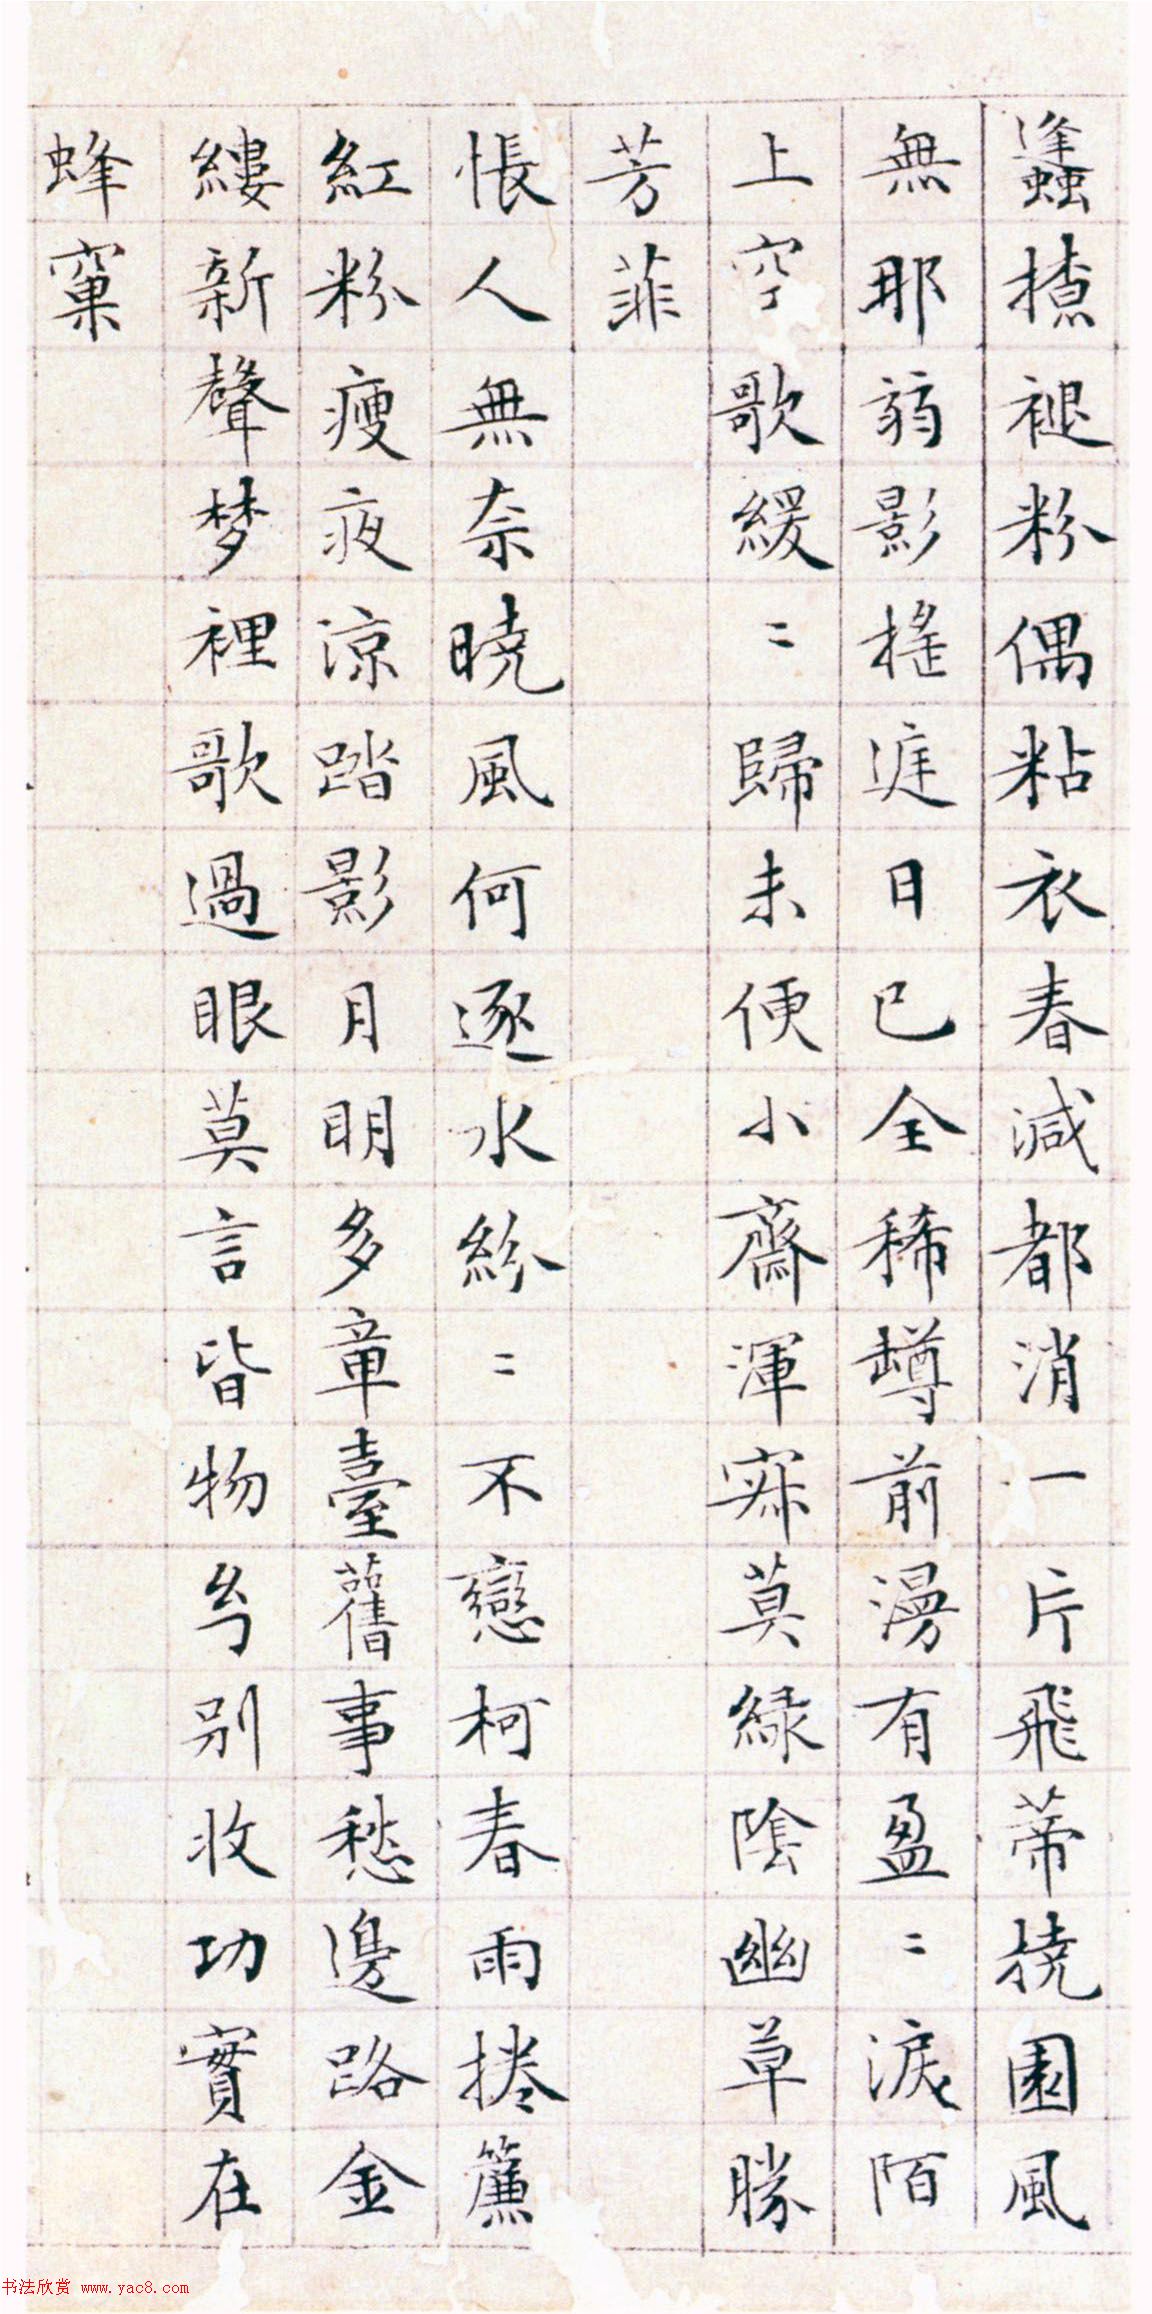 蠭揸褪粉偶粘衣春減都消一片飛蒂撓園風
無那弱影搖遅日已全稀樽前漫有盈〻淚陌
上空歌緩〻歸未便小齋渾寂莫緑陰幽草勝
芳菲
悵人無奈曉風何逐水紛〻不戀柯春雨捲簾
紅粉瘦夜涼踏影月明多章臺舊事愁邊路金
縷新聲夢裡歌過眼莫言皆物𠔃別收功實在
蜂窠
书法欣赏 www.yac8.com